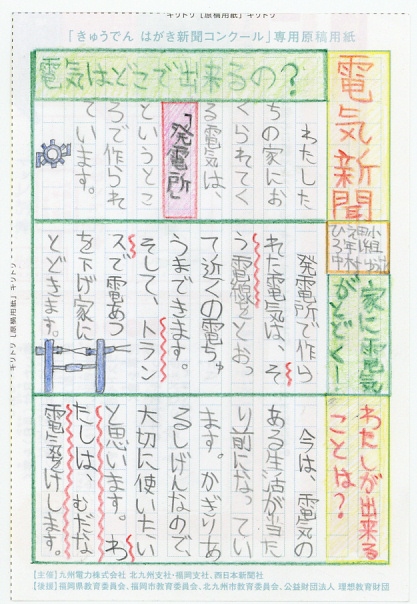 キリトリ【原稿用紙】キリトリ
「きゅうでん はがき新聞コンクール」専用原稿用紙
電気新聞
電気はどこで出来るの？
わたした
ちの家にお
くられてく
る電気は、
「発電所」
というとこ
ろで作られ
ています。
家に電気
がとどく！
発電所で作ら
れた電気は、そ
う電線をとおっ
て近くの電ちゅ
うまできます。
そして、トラン
スで電あつ
を下げ家に
とどきます。
わたしが出来る
ことは？
今は、電気の
ある生活が当た
り前になってい
ます。かぎりあ
るしげんなので、
大切に使いたい
と思います。わ
たしは、むだな
電気をけします。
キリトリ【原稿用紙】キリトリ
【主催】九州電力株式会社 北九州支社・福岡支社、西日本新聞社
【後援】福岡県教育委員会、福岡市教育委員会、北九州市教育委員会、公益財団法人 理想教育財団